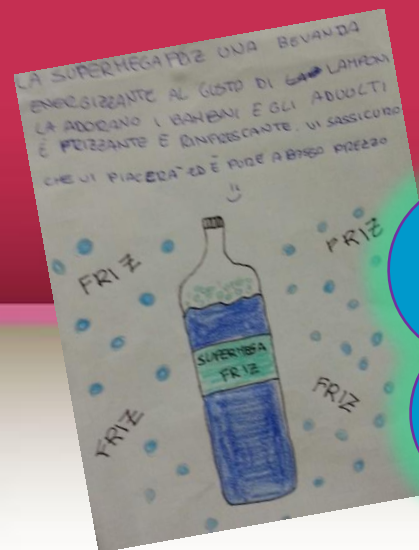 LA SUPERMEGAFRIZ UNA BEVANDA
ENERGIZZANTE AL GUSTO DI LAMPONI
LA ADORANO I BAMBINI E GLI ADUOLTI
È FRIZZANTE E RINFRESCANTE. VI SASSICURO
CHE VI PIACERA' ED È PURE A BASSO PREZZO
FRIZ
FRIZ
SUPERMEGA
FRIZ
FRIZ
FRIZ